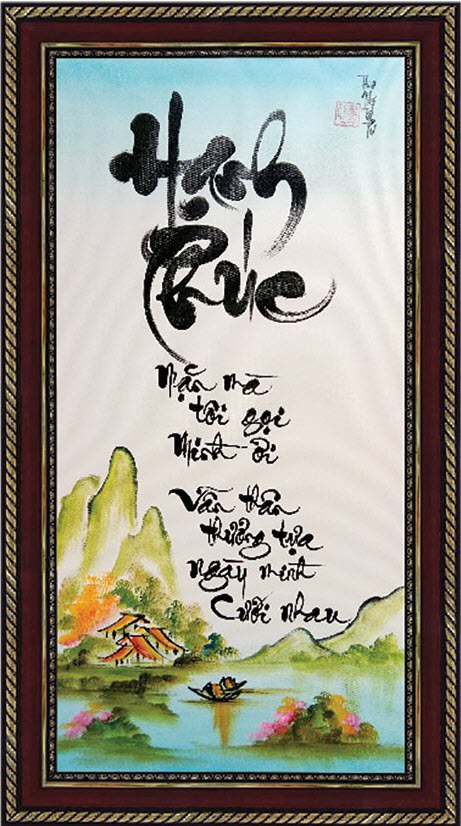 Hạnh
Phúc
Mặn mà
tôi gọi
Mình ơi
Vẫn thân
thương tựa
ngày mình
Cưới nhau